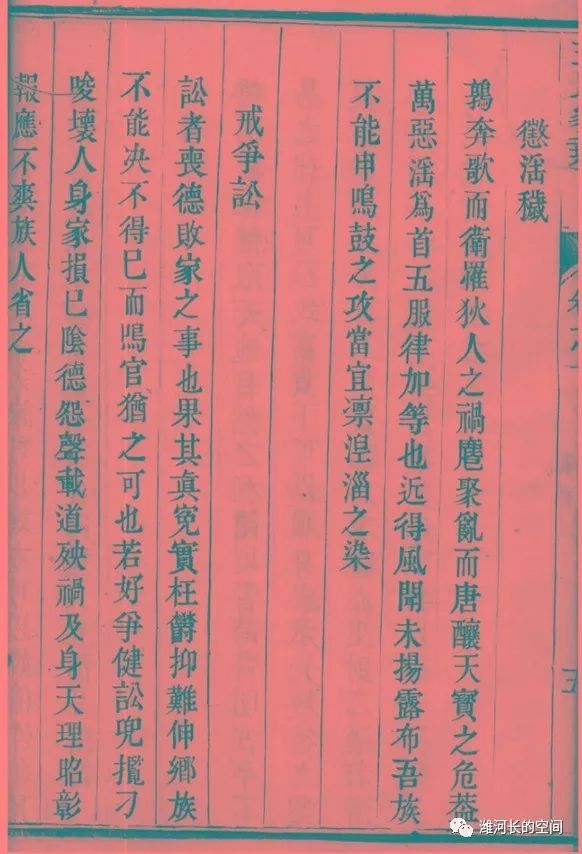 懲滛穢
鶉奔歌而衛罹狄人之禍麀聚亂而唐釀天寶之危葢
萬惡滛爲首五服律加等也近得風聞未揚露布吾族
不能申鳴鼓之攻當宜凛湼淄之染
戒爭訟
訟者喪德敗家之事也果其真寃實枉欝抑難伸鄉族
不能决不得已而鳴官猶之可也若好爭健訟兜攬刁
唆壞人身家損已陰德怨聲載道殃禍及身天理昭彰
報應不爽族人省之
五
潍河长的空间